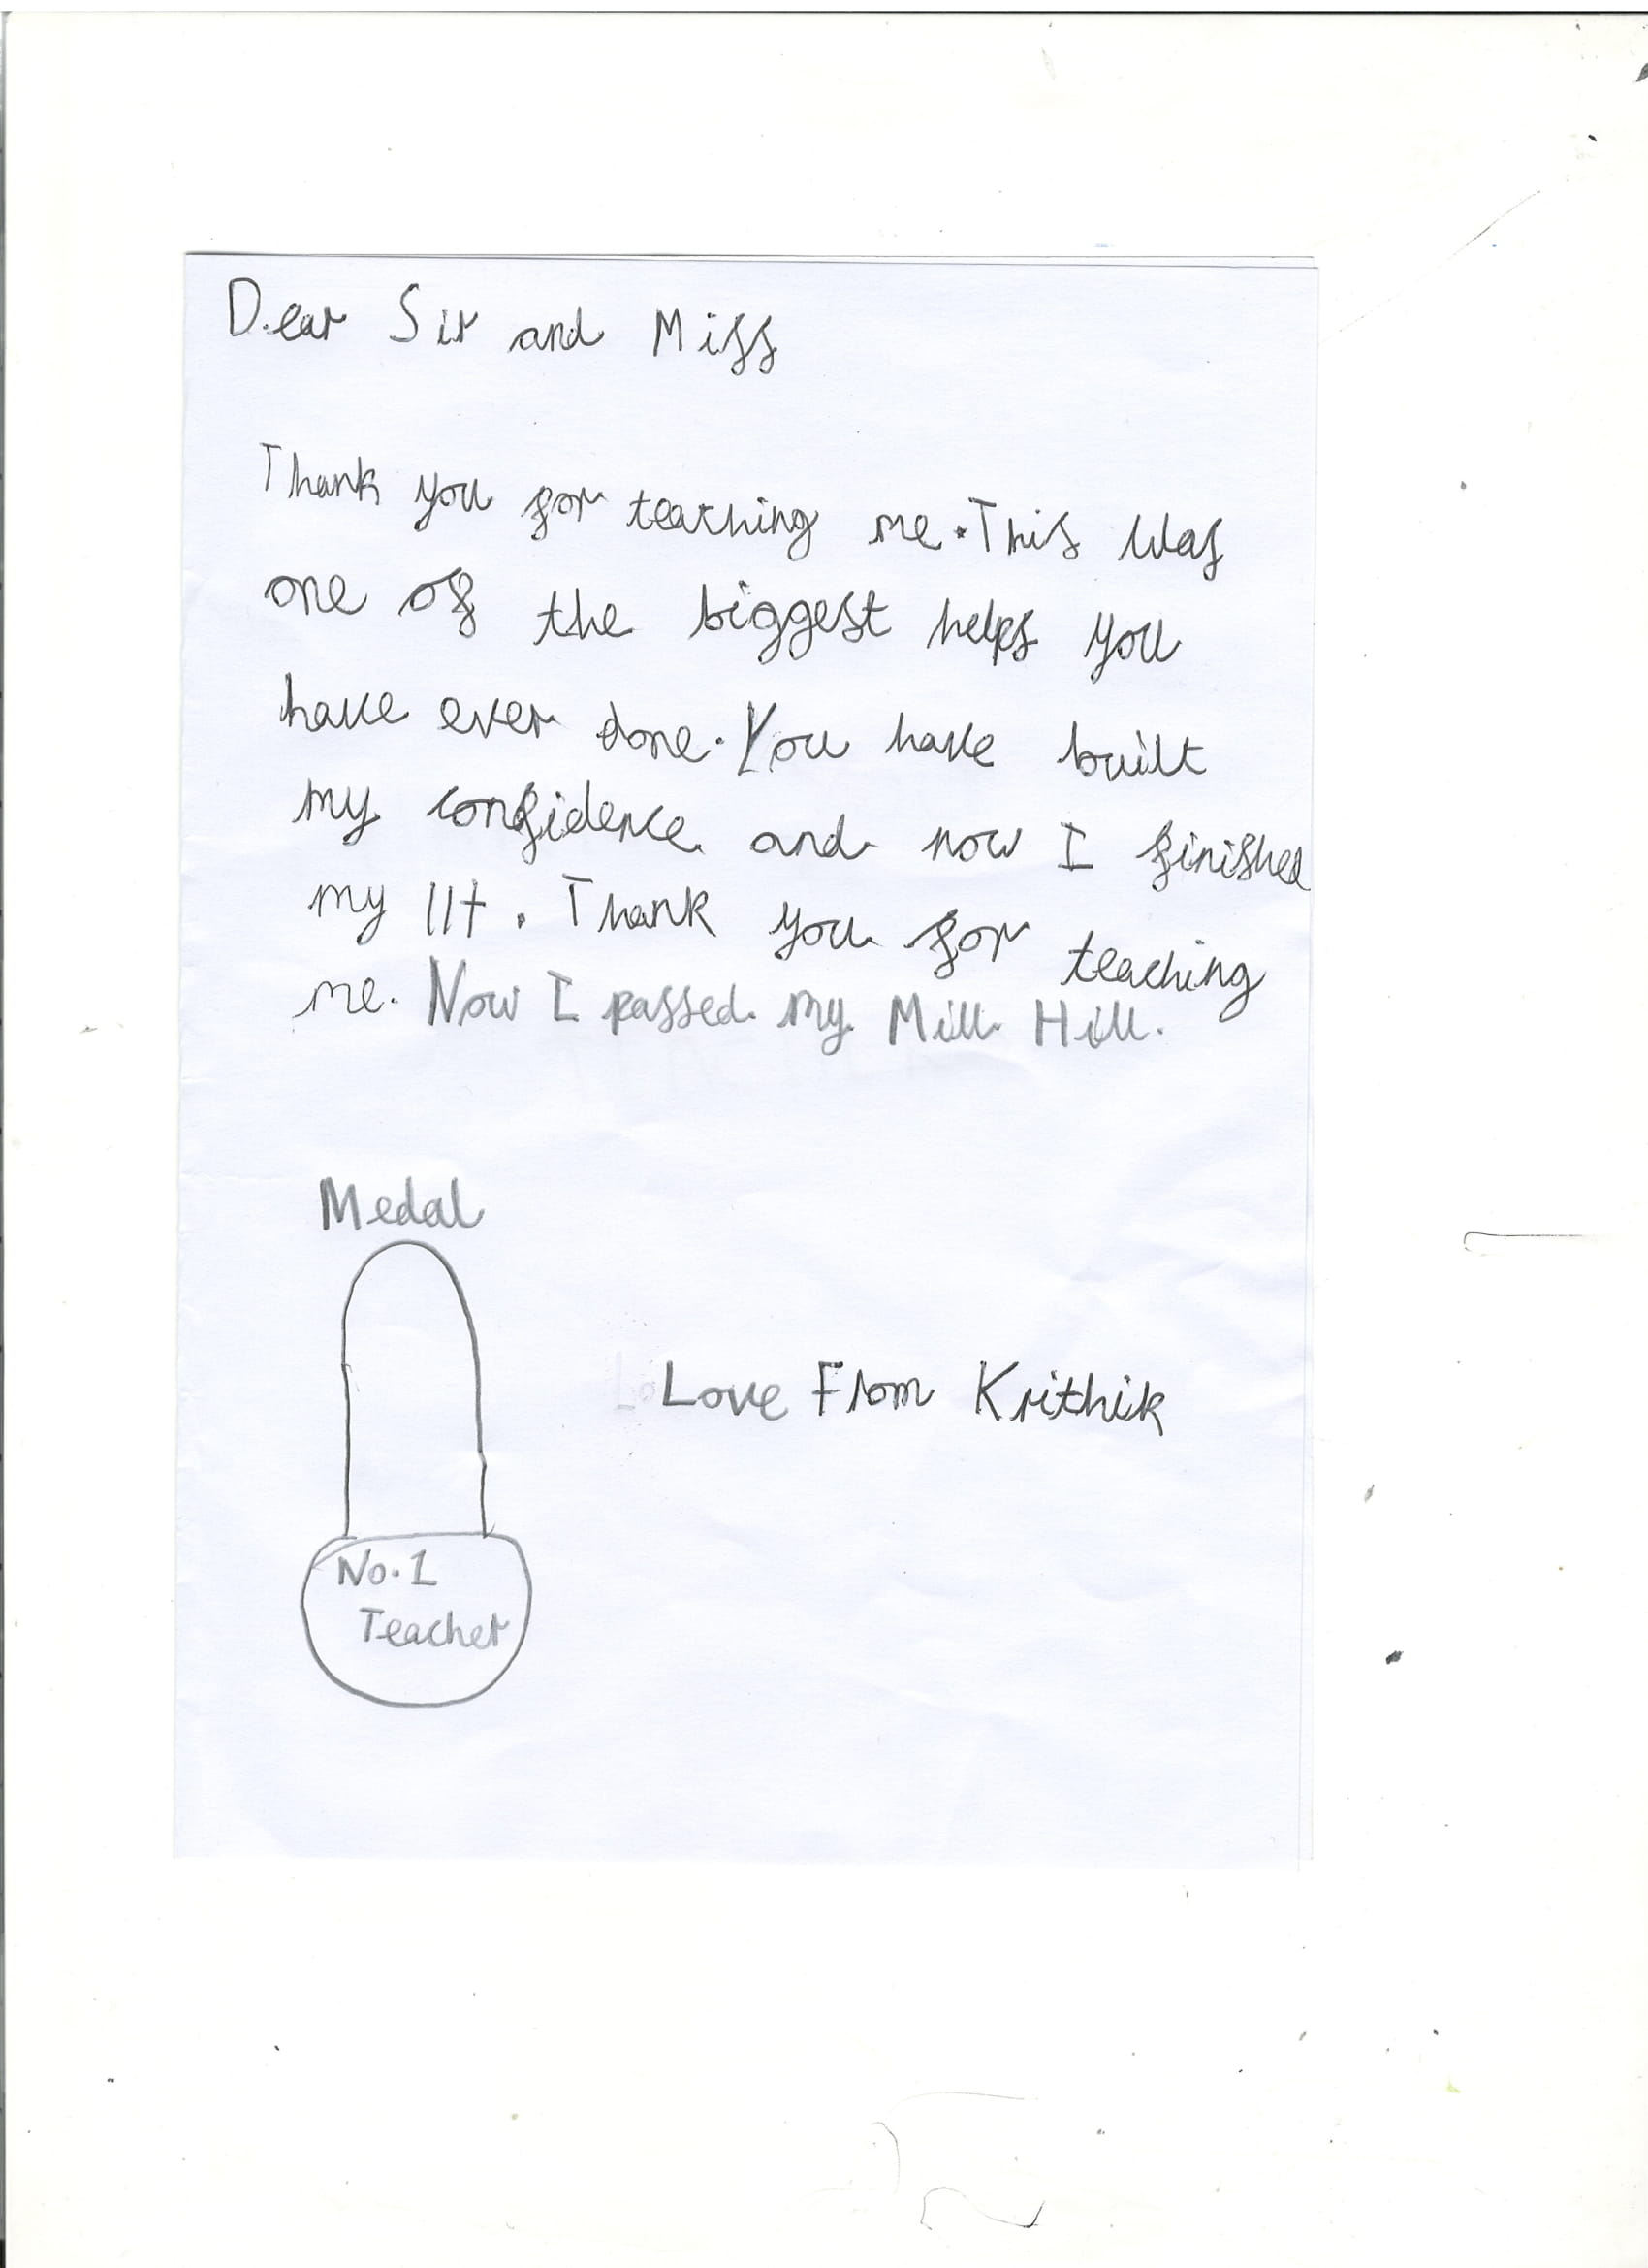 Dear Sir and Miss
Thank you for teaching me. This was
one of the biggest helps you
have ever done. You have built
my confidence and now I finished
my 11+. Thank you for teaching
me. Now I passed my Mill Hill.
Medal
Love From Krithik
No.1
Teacher